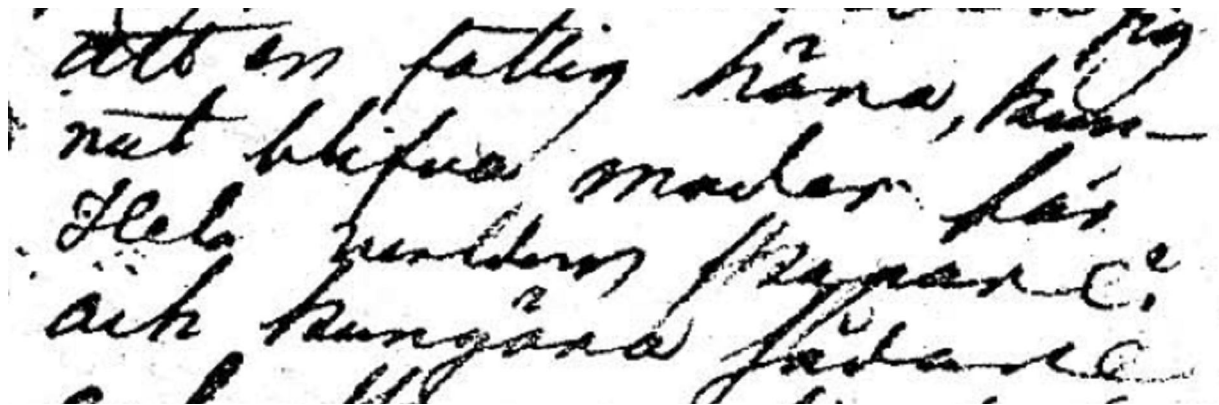 att en fattig kun-
nat blifva moder för
Hela verldens skapare?
och kungöra